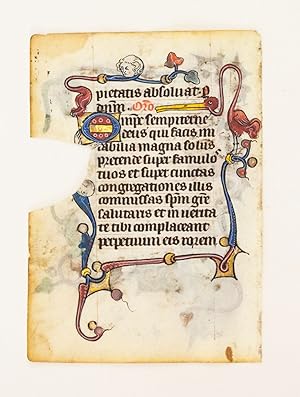 pietatis absoluat. P
dn̄m. Oro
Omp̄s sempiterne
deus qui facis mi
rabilia magna solus
pretende super famulos
tuos et super cunctas
congregationes illis
commissas spm̄ grē
salutaris et in uerita
te tibi complaceant
perpetuum eis rorem